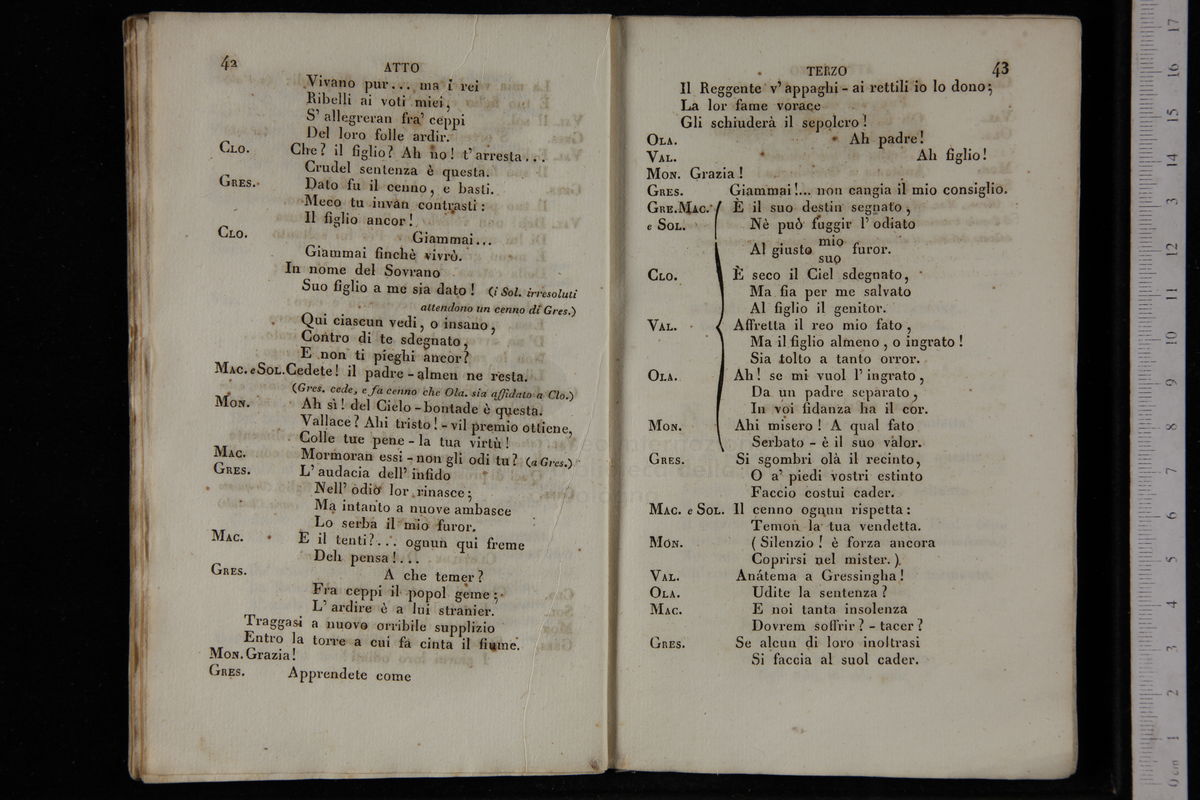 42 ATTO
Vivano pur... ma i rei
Ribelli ai voti miei,
S' allegreran fra' ceppi
Del loro folle ardir.
CLO. Che? il figlio? Ah no! t' arresta...
Crudel sentenza è questa.
GRES. Dato fu il cenno, e basti.
Meco tu invan contrasti:
Il figlio ancor!
CLO. Giammai...
Giammai finchè vivrò.
In nome del Sovrano
Suo figlio a me sia dato! (i Sol. irresoluti
attendono un cenno di Gres.)
Qui ciascun vedi, o insano,
Contro di te sdegnato,
E non ti pieghi ancor?
MAC. e SOL. Cedete! il padre - almen ne resta.
(Gres. cede, e fa cenno che Ola. sia affidato a Clo.)
MON. Ah sì! del Cielo - bontade è questa.
Vallace? Ahi tristo! - vil premio ottiene,
Colle tue pene - la tua virtù!
MAC. Mormoran essi - non gli odi tu? (a Gres.)
GRES. L' audacia dell' infido
Nell' odio lor rinasce;
Ma intanto a nuove ambasce
Lo serba il mio furor.
MAC. E il tenti?... ognun qui freme
Deh pensa!...
GRES. A che temer?
Fra ceppi il popol geme;
L' ardire è a lui stranier.
Traggasi a nuovo orribile supplizio
Entro la torre a cui fa cinta il fiume.
MON. Grazia!
GRES. Apprendete come
TERZO 43
Il Reggente v' appaghi - ai rettili io lo dono;
La lor fame vorace
Gli schiuderà il sepolcro!
OLA. Ah padre!
VAL. Ah figlio!
MON. Grazia!
GRES. Giammai!... non cangia il mio consiglio.
GRE. MAC. È il suo destin segnato,
e SOL. Nè può fuggir l' odiato
Al giusto mio furor.
suo
CLO. È seco il Ciel sdegnato,
Ma fia per me salvato
Al figlio il genitor.
VAL. Affretta il reo mio fato,
Ma il figlio almeno, o ingrato!
Sia tolto a tanto orror.
OLA. Ah! se mi vuol l' ingrato,
Da un padre separato,
In voi fidanza ha il cor.
MON. Ahi misero! A qual fato
Serbato - è il suo valor.
GRES. Si sgombri olà il recinto,
O a' piedi vostri estinto
Faccio costui cader.
MAC. e SOL. Il cenno ognun rispetta:
Temon la tua vendetta.
MON. (Silenzio! è forza ancora
Coprirsi nel mister.)
VAL. Anátema a Gressingha!
OLA. Udite la sentenza?
MAC. E noi tanta insolenza
Dovrem soffrir? - tacer?
GRES. Se alcun di loro inoltrasi
Si faccia al suol cader.
0 cm 1 2 3 4 5 6 7 8 9 10 11 12 13 14 15 16 17